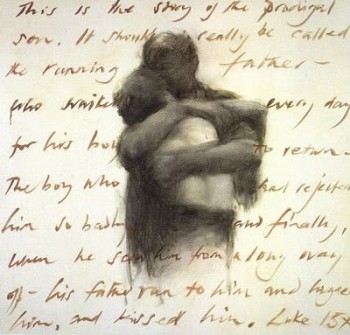 This is the story of the prodigal
son. It should really be called
the running father -
who waited every day
for his boy to return -
The boy who had rejected
him so badly and finally,
when he saw him from a long way
off - his father ran to him and
him, and kissed him. Luke 15